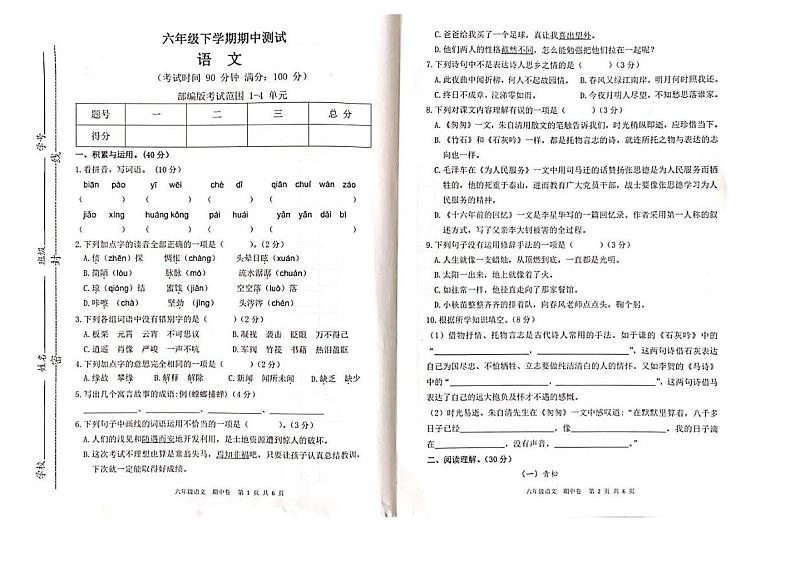 六年级下学期期中测试
语 文
(考试时间 90 分钟 满分: 100 分)
部编版考试范围 1-4 单元
题号 一 二 三 总 分
得分
一、积累与运用。(40 分)
1. 看拼音，写词语。(10 分)
biān pào yī wēi chè dǐ qiān chuí wàn záo
( ) ( ) ( ) ( )
jiǎo xíng huáng kǒng pái huái yǎn yǎn dài bì
( ) ( ) ( ) ( )
2. 下列加点字的读音全部正确的一项是( )。(2 分)
A. 侦(zhēn)探 惆怅(chàng) 头晕目眩(xuán)
B. 简陋(lòu) 脉脉(mò) 流水潺潺(chán)
C. 琼(qióng)浆 蜜饯(jiàn) 空空落落(luò)
D. 咔嚓(chā) 坚劲(jìng) 头涔涔(cén)
3. 下列各组词语中没有错别字的是( )(2 分)
A. 板栗 元霄 云宵 不可思议 B. 凝视 袭击 眨眼 万不得已
C. 逍遥 肖像 严峻 一声不吭 D. 军阀 竹筏 书籍 热泪盈眶
4. 下列加点字的意思完全相同的一项是( )(2 分)
A. 缘故 攀缘 B. 解释 解除 C. 无济于事 同舟共济 D. 缺乏 缺少
5. 写出几个寓言故事的成语:例(螳螂捕蝉) (4 分)
6. 下列句子中画线的词语运用不恰当的一项是( )。(3 分)
A. 人们的浅见和随遇而安地开发利用，是土地资源遭到惊人的破坏。
B. 这次考试不理想也算是塞翁失马，焉知非福吧，只要让孩子认真总结教训，
下次就一定能取得好成绩。
六年级语文 期中卷 第 1 页 共 6 页
学校 姓名 班级 学号
密 封 线
C. 爸爸给我买了一个足球，真让我喜出望外。
D. 他们两人的性格截然不同，怎么能勉强把他们拉在一起呢!
7. 下列诗句中不是表达诗人思乡之情的是( )(3 分)
A. 此夜曲中闻折柳，何人不起故园情。 B. 春风又绿江南岸，明月何时照我还。
C. 但使龙城飞将在，不教胡马度阴山。 D. 今夜月明人尽望，不知秋思落谁家。
8. 下列对课文内容理解有误的一项是( )(3 分)
A.《匆匆》一文，朱自清用散文的笔触告诉我们，时光稍纵即逝，应珍惜当下。
B.《竹石》和《石灰吟》一样，都是托物言志的诗，就连所托之物与表达的志
向也一样。
C. 毛泽东在《为人民服务》一文中用司马迁的话赞扬张思德是为人民服务而牺
牲的，他的死重于泰山，进而教育广大党员干部，战士要像张思德学习为人
民服务的精神。
D.《十六年前的回忆》一文是李星华写的一篇回忆录。作者采用第一人称的叙
述方式，写了父亲李大钊被害的全过程。
9. 下列句子没有运用修辞手法的一项是( )(3 分)
A. 人生就像一支蜡烛，从顶燃到底，一直都是光明。
B. 太阳一出来，地上就已着了火。
C. 如往常一样，他径直走向了那家餐馆。
D. 小秋苗整整齐齐的排着队，向春风老师点点头，鞠个躬。
10. 根据所学知识填空。(8 分)
(1) 借物抒情、托物言志是古代诗人常用的手法。如于谦的《石灰吟》中的
“ ， ”，这两句诗表达
自己为国尽忠、不怕牺牲、立志要做纯洁清白的人的情怀。又如李贺的《马诗》
中的“ ， ”，这两句诗借马
表达了自己的远大抱负及怀才不遇的感慨。
(2) 时光易逝，朱自清先生在《匆匆》一文中感叹道:“在默默里算着，八千多
日子已经 ，像 ，我的日子滴
在 ，没有声音， 。”
二、阅读理解。(30 分)
(一) 青松
六年级语文 期中卷 第 2 页 共 6 页